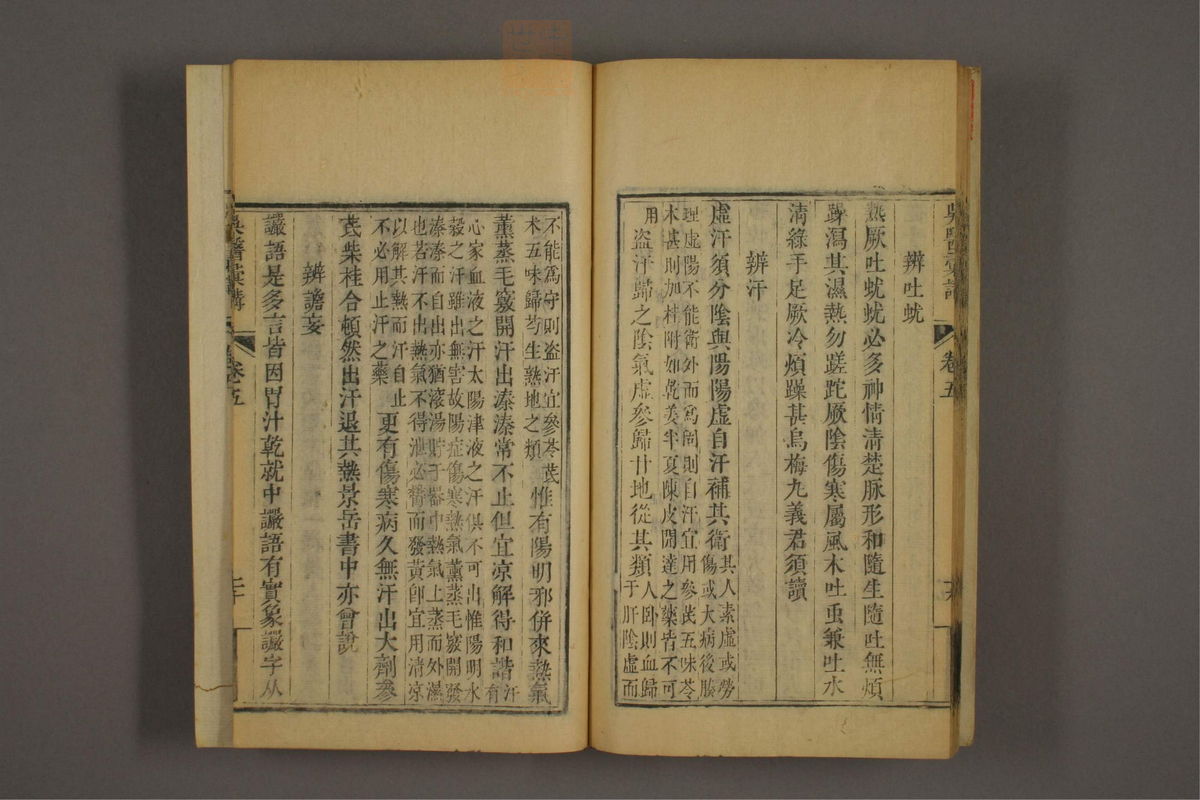 辨吐蚘
熱厥吐蚘蚘必多神情清楚脉形和隨生隨吐無煩
躁瀉其濕熱勿蹉跎厥陰傷寒屬風木吐虫兼吐水
清綠手足厥冷煩躁甚烏梅九義君須讀
辨汗
虛汗須分陰與陽陽虛自汗補其衛
其人素虛或勞
傷或大病後腠
理虛陽不能衛外而爲固則自汗宜用參芪五味苓
术甚則加桂附如乾姜半夏陳皮開達之藥皆不可
用
盜汗歸之陰氣虛參歸甘地從其類
人卧則血歸
于肝陰虛而
不能爲守則盜汗宜參苓芪
术五味歸芍生熟地之類
惟有陽明邪併來熱氣
薰蒸毛竅開汗出溱溱常不止但宜凉解得和諧
汗有
心家血液之汗太陽津液之汗俱不可出惟陽明水
穀之汗雖出無害故陽症傷寒熱氣薰蒸毛竅開發
溱溱而自出亦猶滚湯貯于器中熱氣上蒸而外濕
也若汗不出熱氣不得泄必瞀而發黃卽宜用清凉
以解其熱而汗自止
不必用止汗之藥
更有傷寒病久無汗出大劑參
芪柴桂合頓然出汗退其熱景岳書中亦曾說
辨譫妄
讝語是多言皆因胃汁乾就中讝語有實象讝字从
卷五
卷五